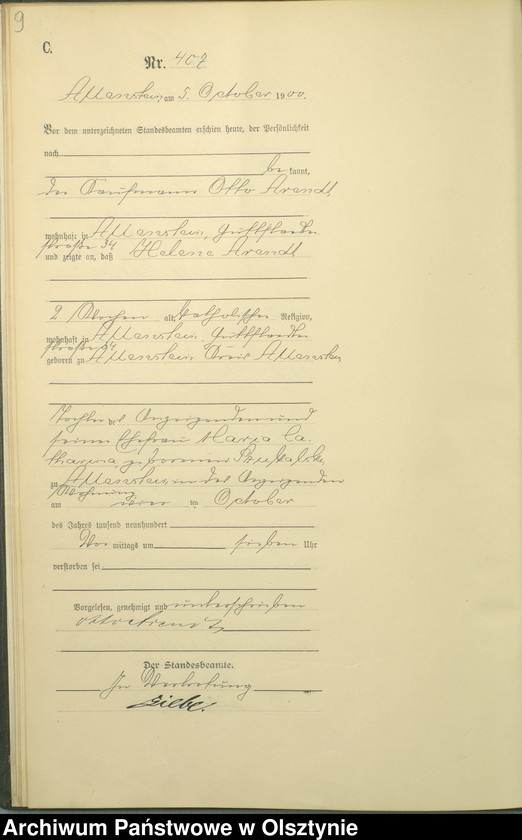 9
C.
Nr. 407
Allenstein, am 5. October 1900.
Vor dem unterzeichneten Standesbeamten erschien heute, der Persönlichkeit
nach
be kannt,
der Kaufmann Otto Arendt,
wohnhaft in Allenstein, Guttstädter
straße 34
und zeigte an, daß Helene Arendt
2 Wochen alt, katholischer Religion,
wohnhaft in Allenstein, Guttstädter
straße 34
geboren zu Allenstein, Kreis Allenstein
Tochter des Anzeigenden und
seiner Ehefrau Maria Ca-
tharina geborenen
zu Allenstein, in des Anzeigenden
Wohnung
am ten October
des Jahres tausend neunhundert
Vor mittags um sieben Uhr
verstorben sei
Vorgelesen, genehmigt und unterschrieben
Otto Arendt
Der Standesbeamte.
In Vertretung
Archiwum Państwowe w Olsztynie